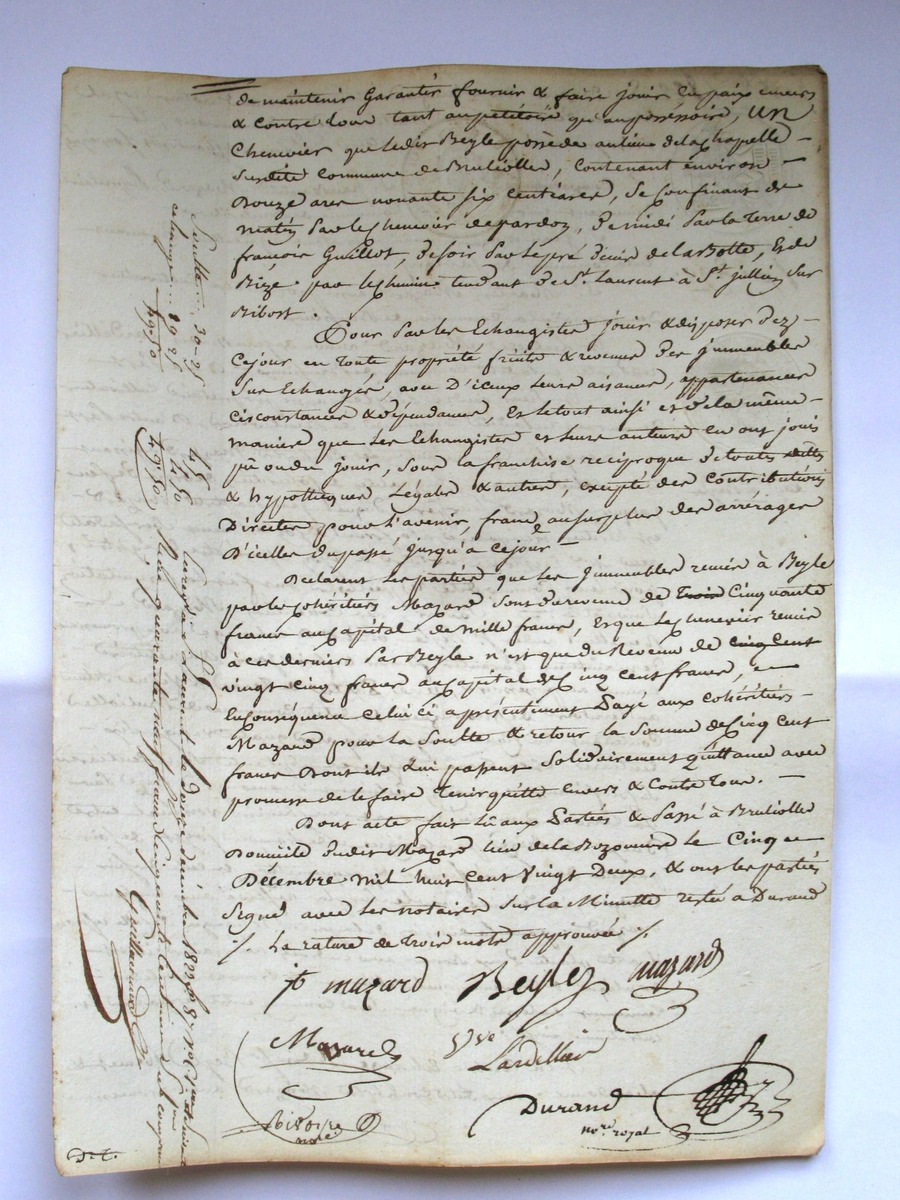 de maintenir Garantir fournir & faire jouir en paix envers
& contre tous tant au pétitoire qu'au possessoire, un
Chenevier que ledit Beyle possède au lieu de la Chapelle
susdite commune de Brulliolle, contenant environ
Douze ares nonante six centiares, se confinant de
matin par le Chenevier de pardon, de midi par la Terre de
françois Guillot, de soir par le pré de la Botte, et de
Bize par le chemin tendant de St. Laurent à St. Jullien sur
Bibost.
Pour par les Echangistes jouir & disposer dez
ce jour en toute propriété fruits & revenus des immeubles
sus Echangés, avec D'iceux leurs aisances, appartenances
circonstances & dépendances, Et le tout ainsi et de la même
maniere que les Echangistes et leurs auteurs en ont joui
pû ou du jouir, sous la franchise reciproque de toutes dettes
& hypotheques Légales & autres, excepté des contributions
Directes pour l'avenir, francs au surplus des arrérages
D'icelles du passé jusqu'à ce jour
Declarent les parties que les immeubles remis à Beyle
par les cohéritiers Mazard sont du revenu de trois Cinquante
francs au Capital de mille francs, et que le chenevier remis
à ces derniers par Beyle n'est que du Revenu de cinq cent
vingt cinq francs au capital de Cinq cent francs, en
Conséquence celui ci a présentement Payé aux cohéritiers
Mazard pour la soulte & retour la somme de Cinq cent
francs Dont ils lui passent solidairement quittance avec
promesse de le faire tenir quitte envers & Contre Tous.
Dont acte fait lû aux Parties & Passé à Brulliolle
Domicile dudit Mazard lieu de la le Cinq
Décembre mil huit cent vingt Deux, & ont les parties
Signé avec les notaires sur la Minutte restée à Durand
./. La rature de trois mots approuvée ./.
jb mazard Beyle mazard
Mazard Lardellier
note
Durand
nore. royal
Soulte... 30-25
échange... 19-25
49-50
45
4.50
49.50
Enregistré à St Laurent le douze décembre 1822
Reçu quarante neuf francs cinquante centimes
Guillermin